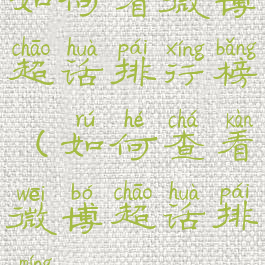 如何看微博
chāo huà pái xíng bǎng
超话排行榜
rú hé chá kàn
（如何查看
wēi bó chāo huà pái
微博超话排
míng